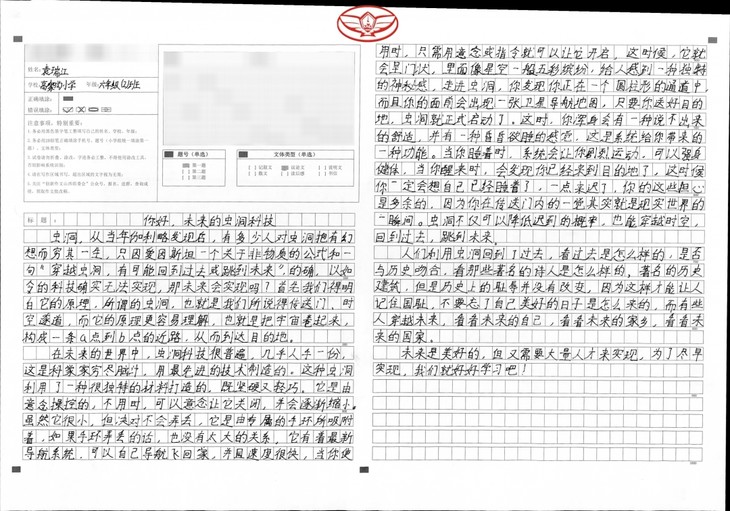 姓名：袁瑞江
年级：六年级
正确填涂：
错误填涂：
注意事项，特别重要：
题号（单选）
第一题
第二题
第三题
文体类型（单选）
记叙文
说明文
读后感
书信
标 题：
你好，未来的虫洞科技
虫洞，从当年伽利略发现后，有多少人对虫洞抱有幻
想而穷其一生，只因爱因斯坦一个关于非物质的公式和一
句“穿越虫洞，有可能回到过去或跳到未来”的确，以如
今的科技确实无法实现，那未来会实现吗？首先我们得明
白它的原理，所谓的虫洞，也就是我们所说得传送门、时
空隧道，而它的原理更容易理解，也就是把宇宙卷起来，
构成一条a点到b点的近路，从而到达目的地。
在未来的世界中，虫洞科技很普遍，几乎人手一份，
这是科学家穷尽脑汁，用最先进的技术制造的。这种虫洞
利用了一种很独特的材料打造的，既坚硬又轻巧。它是由
意念操控的，不用时，可以意念让它关闭，并会逐渐缩小。
虽然它很小，但决对不会弄丢，它是由专属的手环所吸附
着，如果手环弄丢的话，也没有太大的关系，它有着最新
导航系统，可以自己导航飞回家，并且速度很快，当你使
用时，只需用意念或指令就可以让它开启，这时候，它就
会呈门状，里面像星空一般五彩缤纷，给人感到一种独特
的神秘感，走进虫洞，你发现你正在一个圆柱形的通道中
而且你的面前会出现一张卫星导航地图，只要你选好目的
地，虫洞就正式启动了。这时，你浑身会有一种说不出来
的舒适，并有一种昏昏欲睡的感觉，这是系统给你带来的
一种功能。当你睡着时，系统会让你剧烈运动，可以强身
健体，当你醒来时，会发现你已经来到目的地了，这时候
你一定会想自己已经睡着了，一点来迟了，你的这些担心
是多余的，因为你在传送门内的一觉其实就是现实世界的
一瞬间。虫洞不仅可以降低迟到的概率，也能穿越时空，
回到过去，跳到未来。
人们利用虫洞回到了过去，看过去是怎么样的，是否
与历史吻合，看那些著名的诗人是怎么样的，著名的历史
建筑，但是历史上的耻辱并没有改变，因为这样才能让人
记住国耻，不要忘了自己美好的日子是怎么来的，而有些
人穿越未来，看看未来的自己，看看未来的家乡，看看未
来的国家。
未来是美好的，但又需要大量人才来实现，为了尽早
实现，我们就好好学习吧！